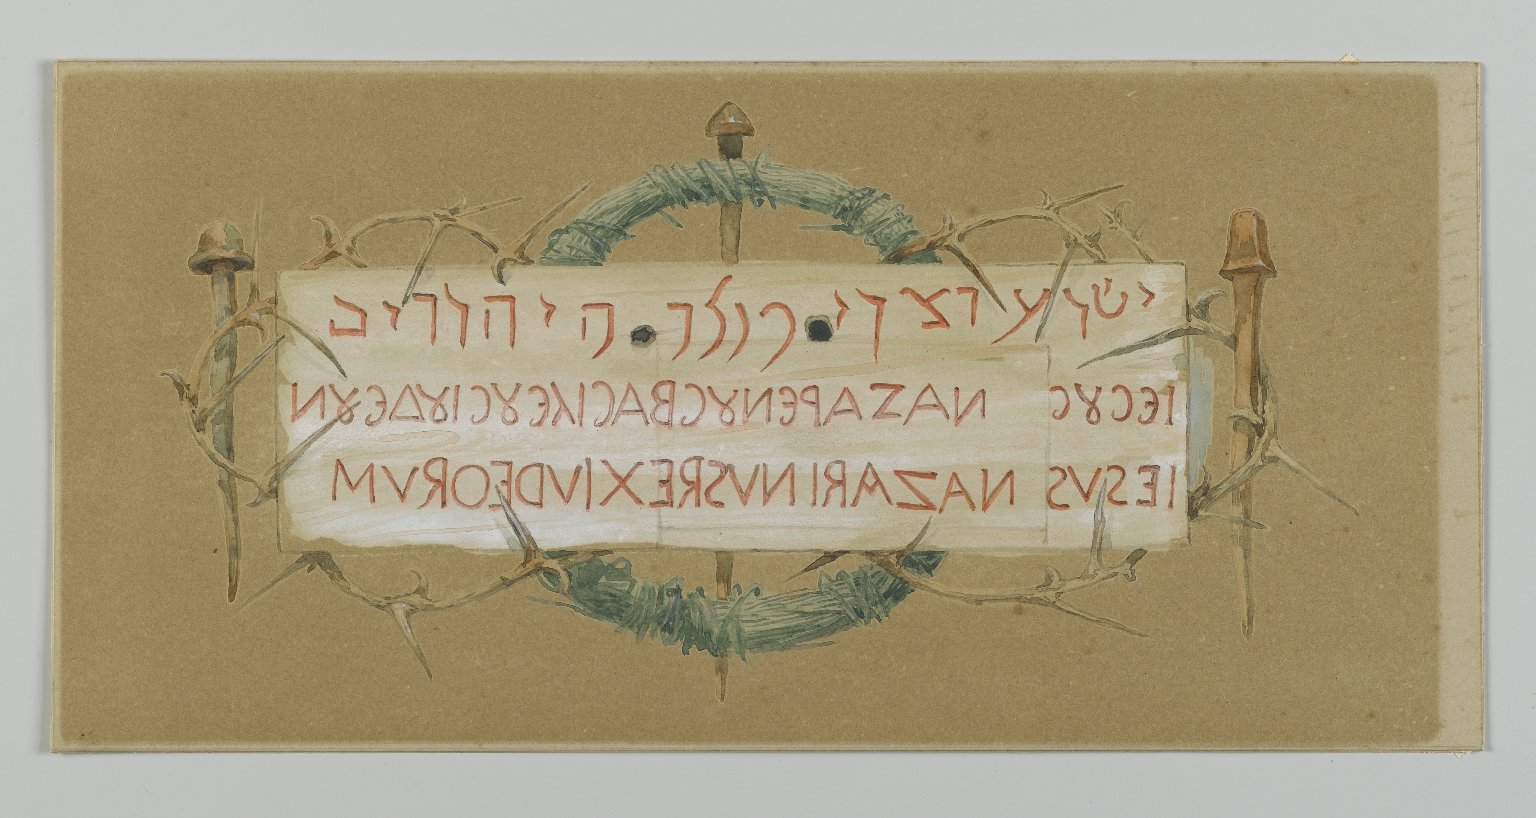 ישוע נצרי ה יהודים
IECȢC NAZAPENȢCBACIΛEȢCIȢΔEȢN
IESVS NAZARINVSREXIVDEORVM